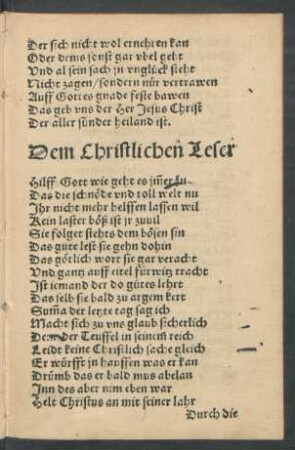 Der sich nicht wol ernehren kan
Oder dems sonst gar vbel geht
Vnd al sein sach jn vnglück steht
Nicht zagen / sondern nür vertrawen
Auff Gottes gnade feste bawen
Das geb vns der Her Jesus Christ
Der aller sünder heiland ist.
Dem Christlichen̄ Leser
Hilff Gott wie geht es jm̄er zu
Das die schnöde vnd toll welt nu
Ihr nicht mehr helffen lassen wil
Kein laster böß ist jr zuuil
Sie folget stehts dem bösen sin
Das gute lest sie gehn dohin
Das götlich wort sie gar veracht
Vnd gantz auff eitel furwitz tracht
Ist iemand der do gütes lehrt
Das selb sie bald zu argem kert
Sum̄a der letzte tag sag ich
Macht sich zu vns glaub sicherlich
Der Teuffel in seinem̄ reich
Leidt keine Christlich sache gleich
Er würfft jn hauffen was er kan
Drümb das er bald mus abelan
Inn des aber nim eben war
Helt Christus an mit seiner lahr
Durch die